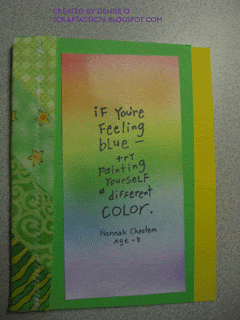 CREATED BY DENISE O
SCRAPTASTIC76.BLOGSPOT.COM
iF You're
Feeling
blue —
try
Painting
YourselF
a different
COLOR.
Hannah Cheatem
Age • 8